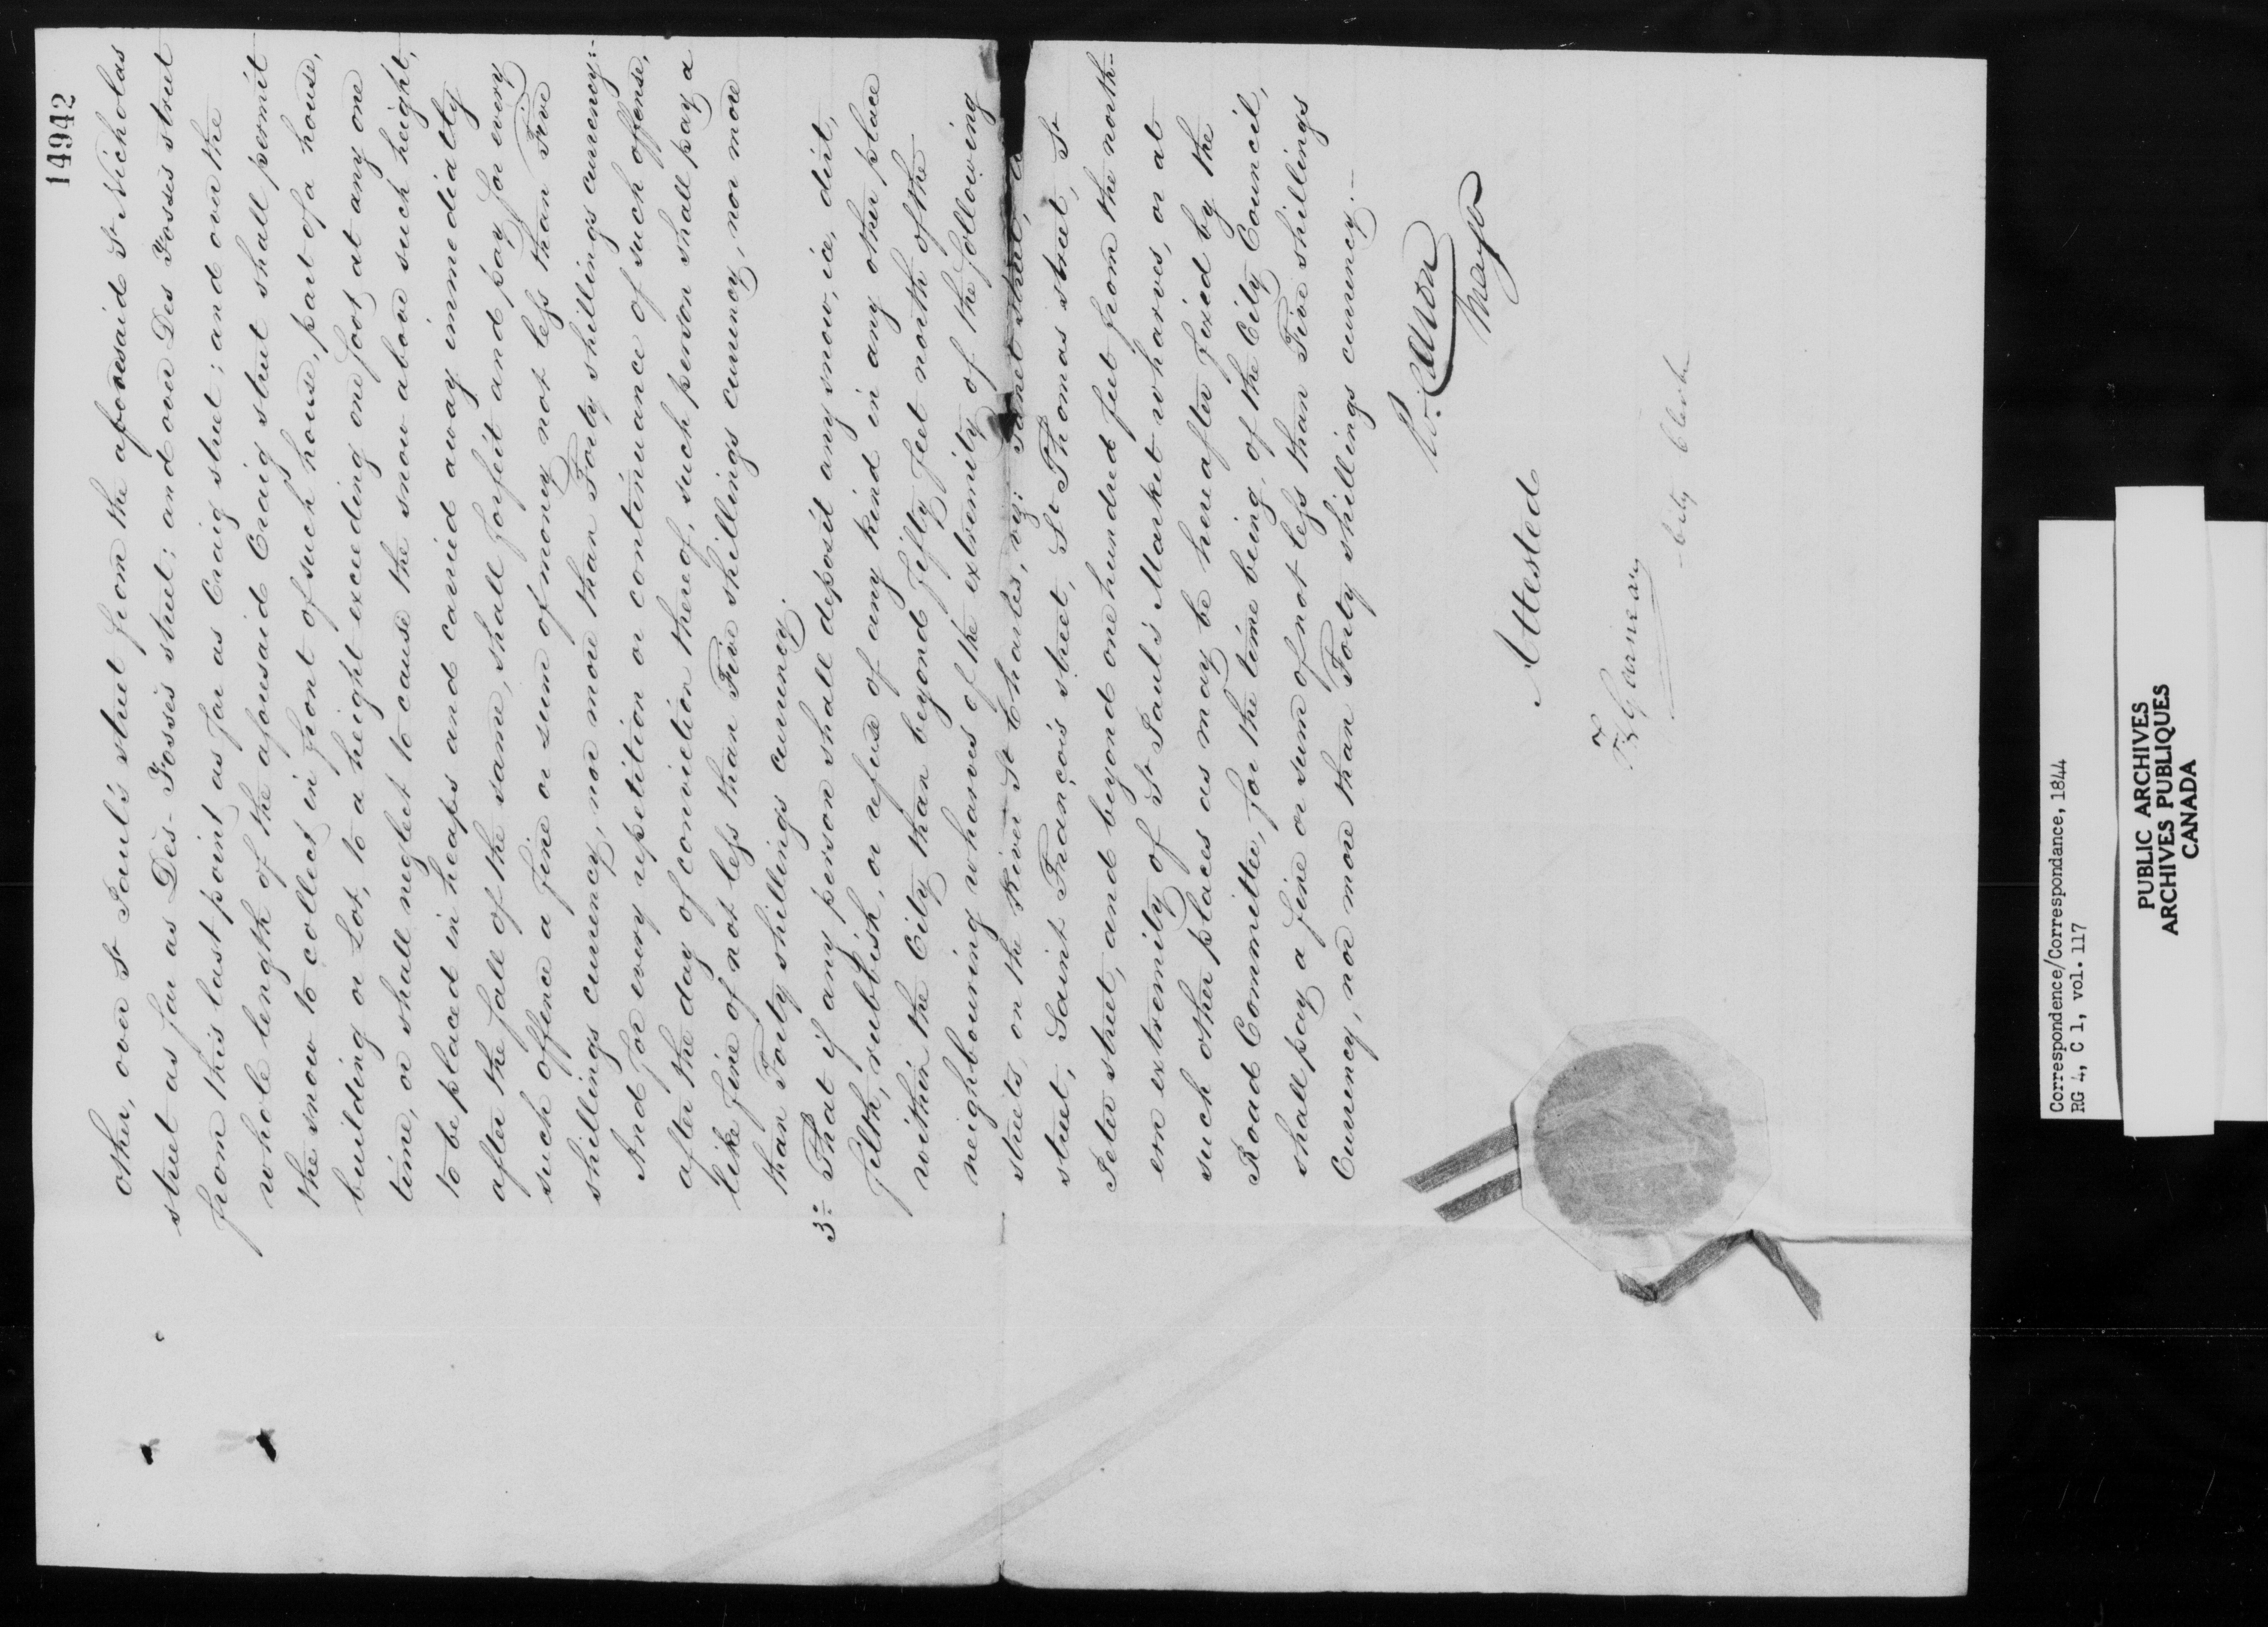 14942
other, over St Paul's street from the aforesaid St Nicholas
street as far as Des-Fossés street; and over Des Fossés street
from this last point as far as Craig street; and over the
whole length of the aforesaid Craig street shall permit
the snow to collect in front of such house, part of a house,
building or Lot, to a height exceeding one foot at any one
time, or shall neglect to cause the snow above such height,
to be placed in heaps and carried away immediatly
after the fall of the same, shall forfeit and pay for every
such offence a fine or sum of money not less than Five
shillings currency, nor more than Forty shillings currency:-
And for every repetition or continuance of such offense,
after the day of conviction thereof, such person shall pay a
like fine of not less than Five shillings currency, nor more
than Forty shillings currency.
3°- That if any person shall deposit any snow, ice, dirt,
filth, rubbish, or refuse of any kind in any other place
within the City than beyond fifty feet north of the
neighbouring wharves of the extremity of the following
streets, on the River St Charles, viz: street,
street, Saint François street, St Thomas street, St
Peter street, and beyond one hundred feet from the north-
ern extremity of St Paul's Market wharves, or at
such other places as may be hereafter fixed by the
Road Committee, for the time being, of the City Council,
shall pay a fine or sum of not less than Five shillings
Currency, nor more than Forty shillings currency.-
R. Caron
Mayor
Attested
F X Garneau
City Clerk
Correspondence/Correspondance, 1844
RG 4, C 1, vol. 117
PUBLIC ARCHIVES
ARCHIVES PUBLIQUES
CANADA